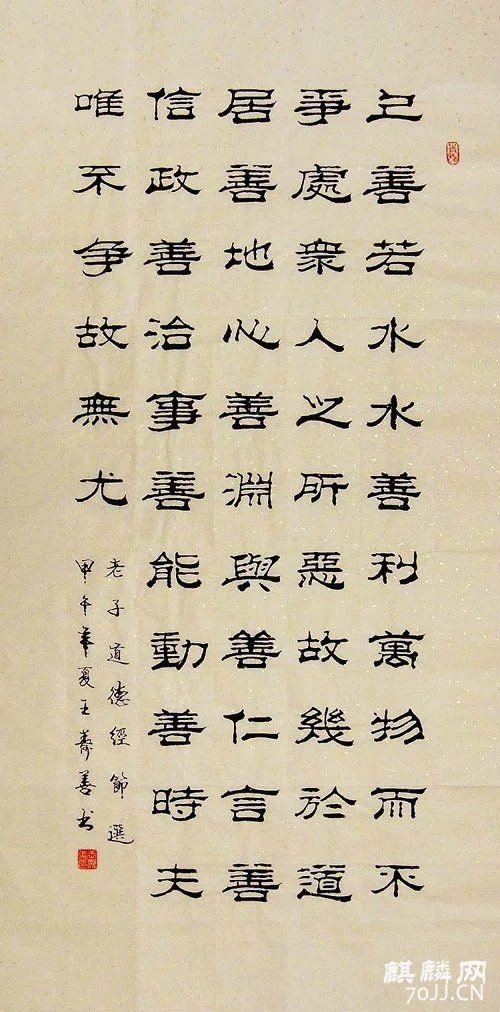 上善若水水善利萬物而不
爭處衆人之所惡故幾於道
居善地心善淵與善仁言善
信政善治事善能動善時夫
唯不争故無尤
老子道德經節選
甲午年夏王壽善书
麒麟网
70JJ.CN